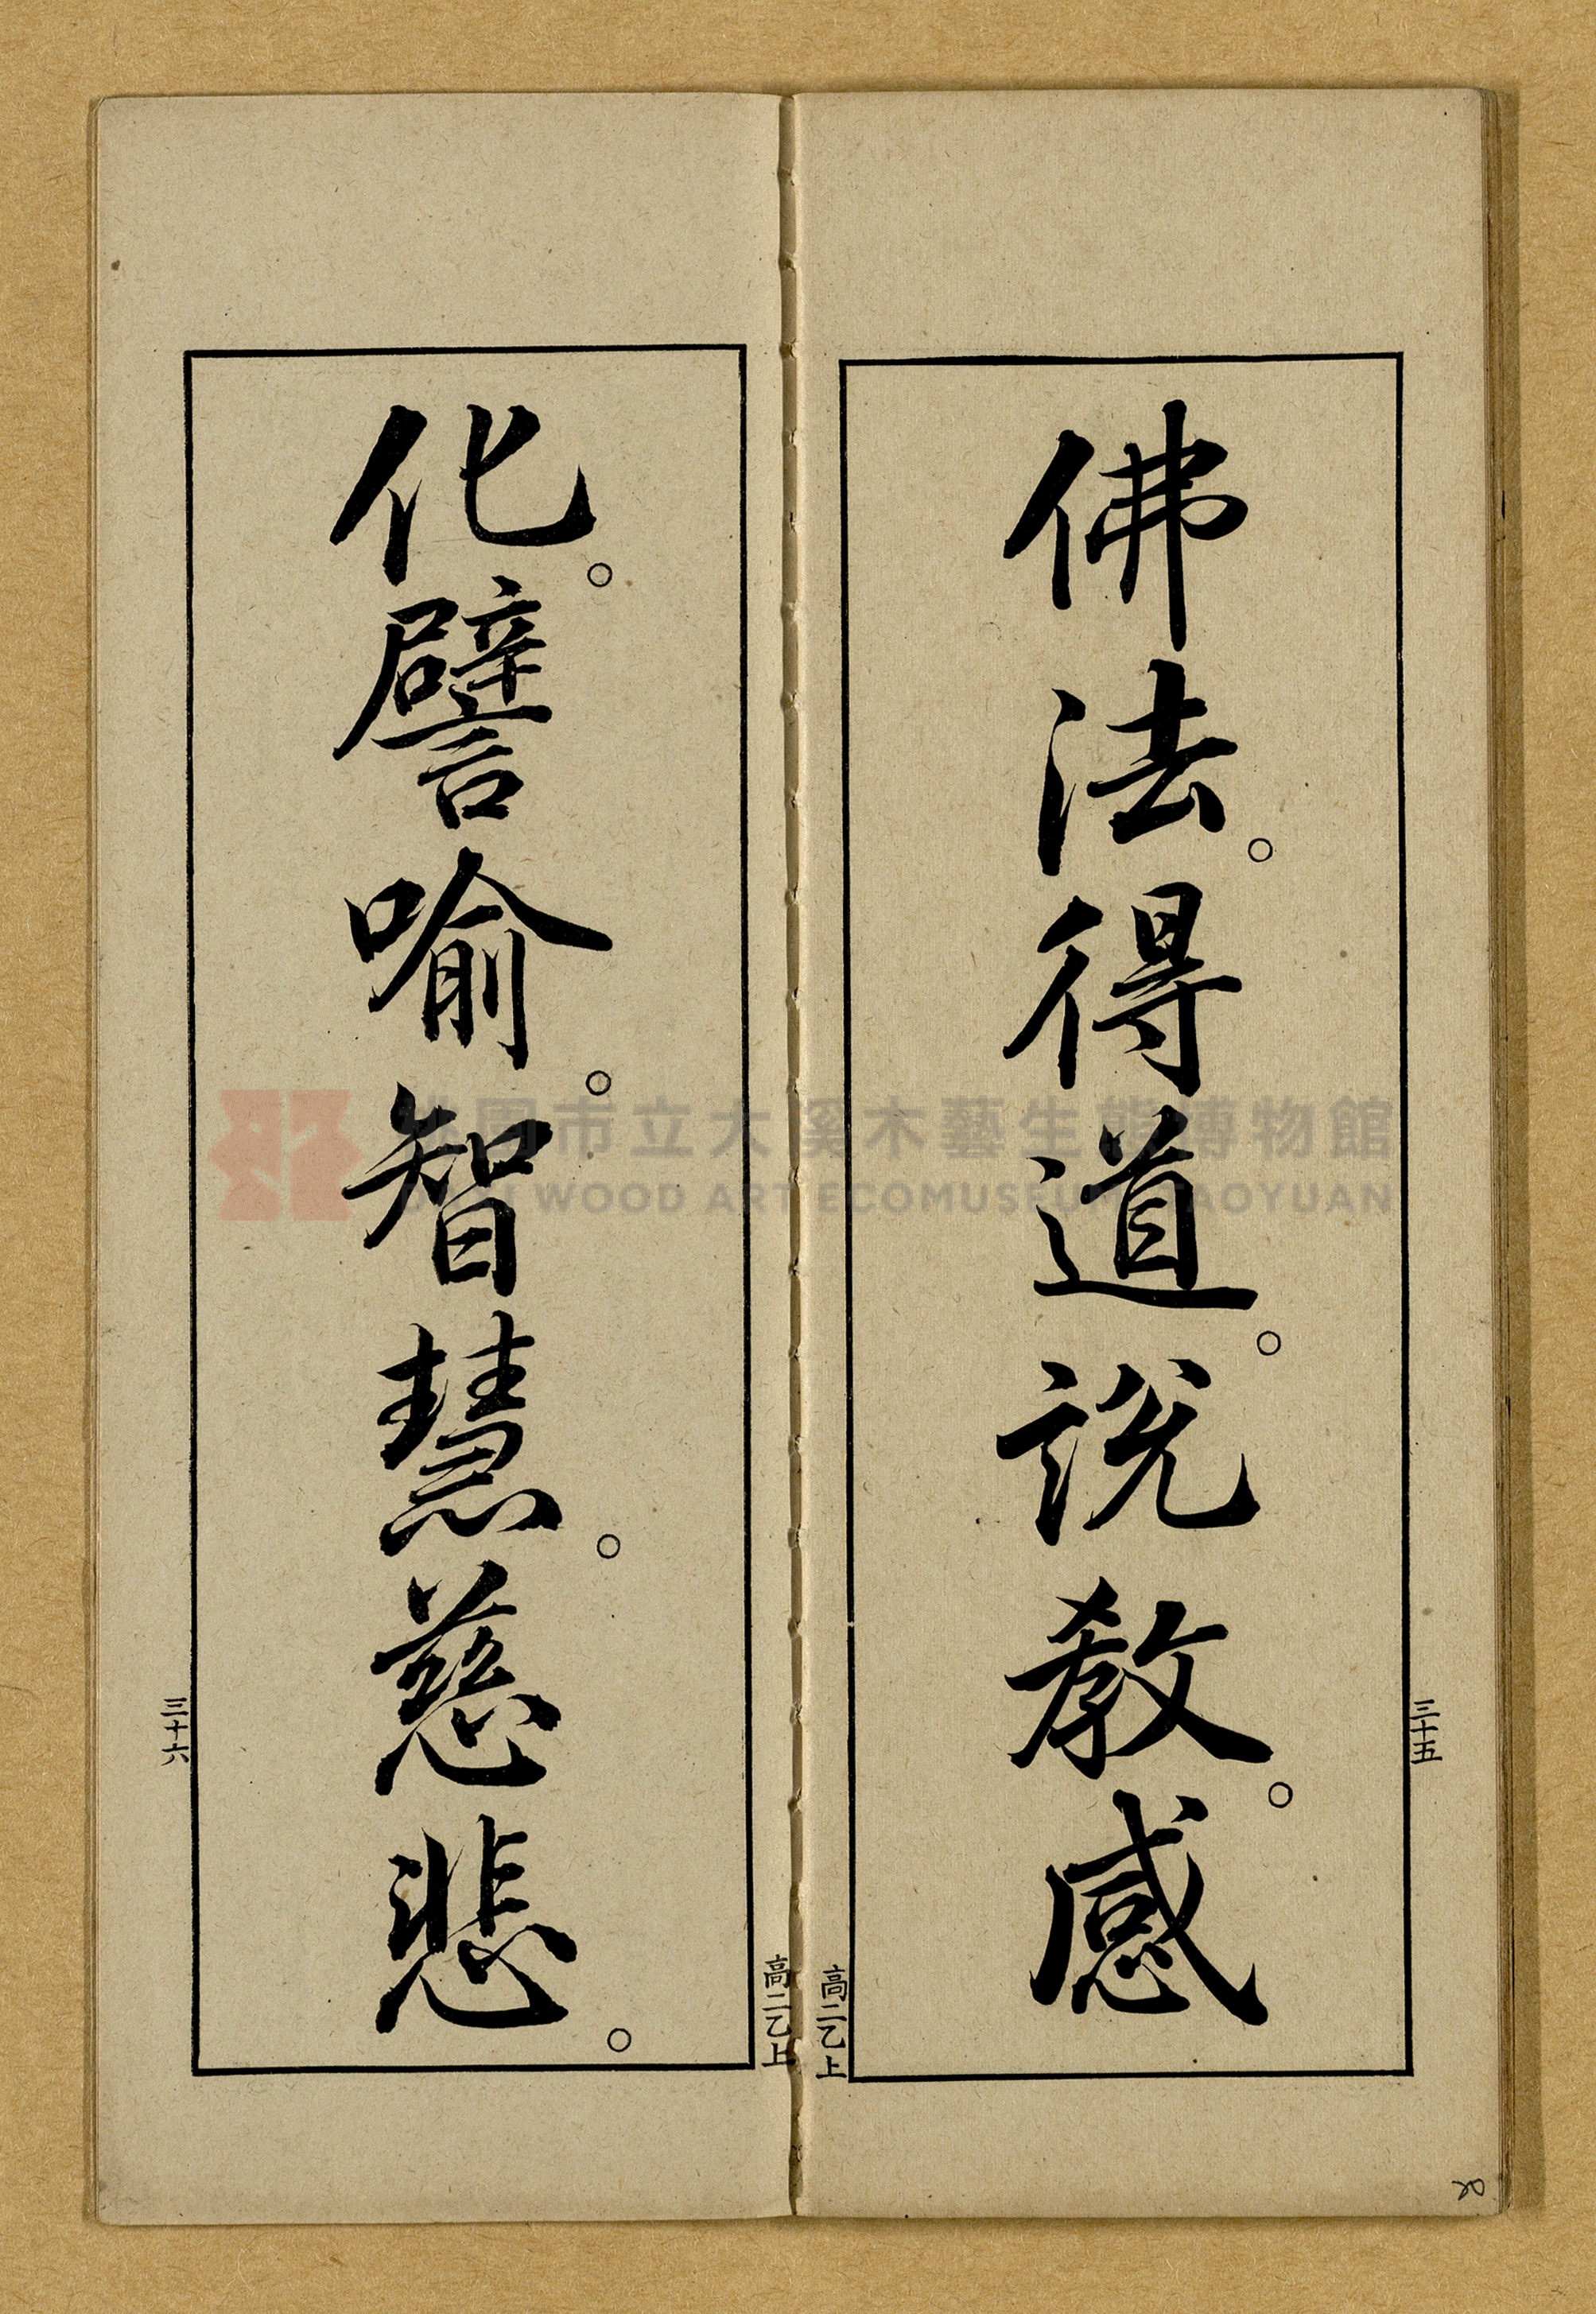 佛法。得道。説教。感
三十五
高二乙上
化。譬喻。智慧。慈悲。
三十六
高二乙上
桃園市立大溪木藝生態博物館
DAXI WOOD ART ECOMUSEUM, TAOYUAN